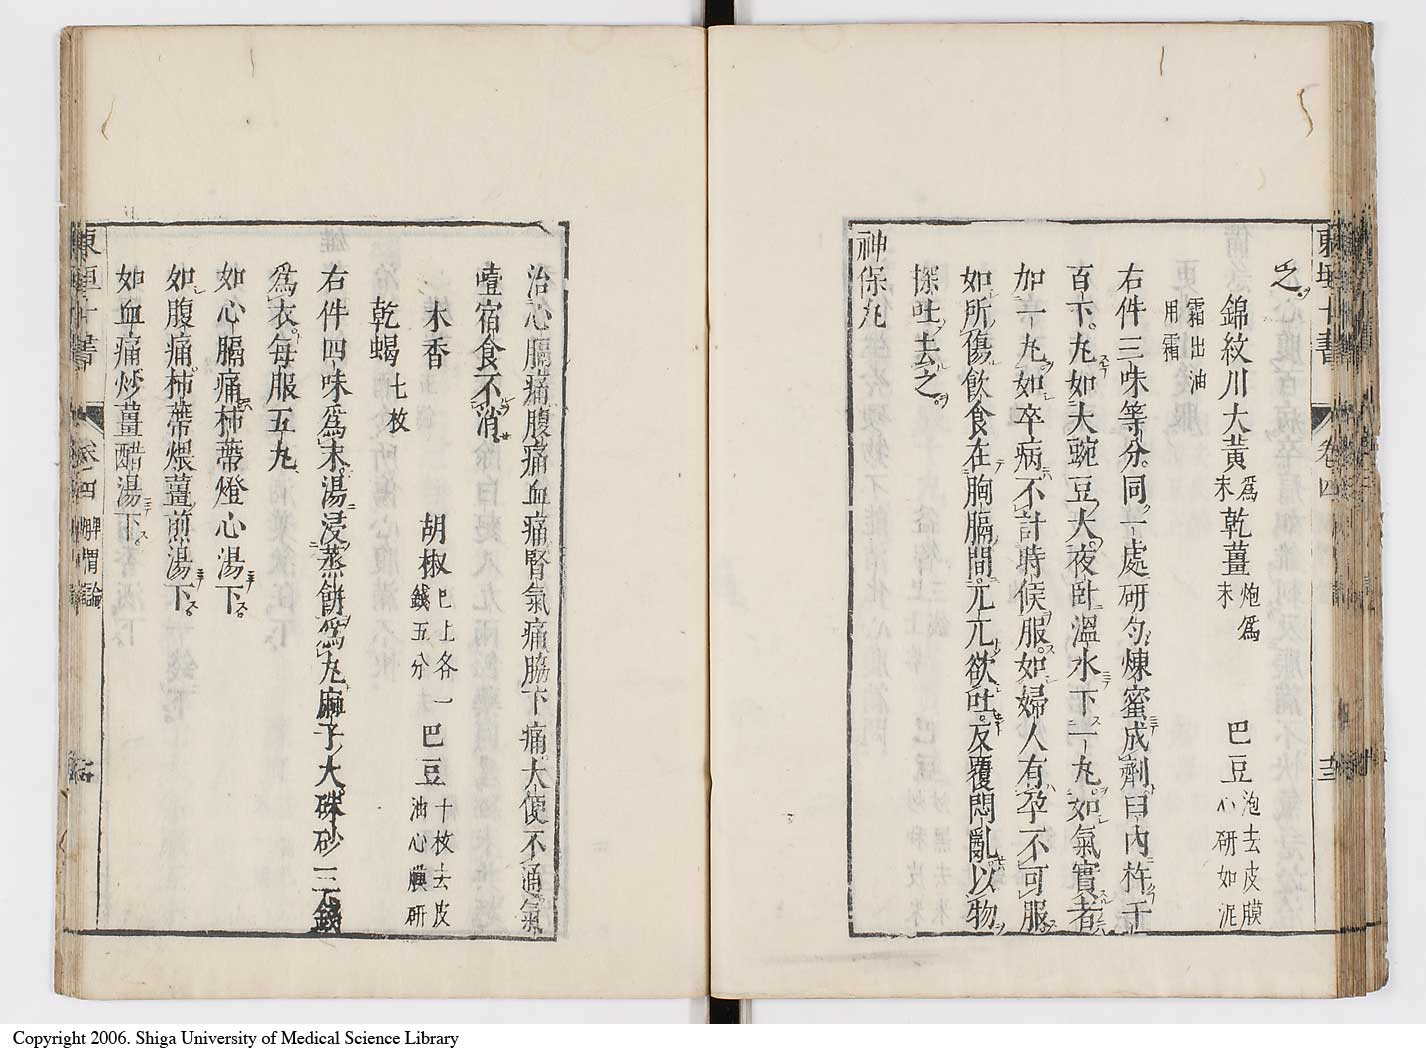 之
錦紋川大黃爲末乾薑炮爲末巴豆泡去皮膜心研如泥
霜出油用霜
右件三味等分同一處研勻煉蜜成劑臼內杵千
百下丸如大豌豆大夜臥溫水下一丸如氣實者
加一丸如卒病不計時候服如婦人有孕不可服
如所傷飲食在胸膈間兀兀欲吐反覆悶亂以物
探吐去之
神保丸
治心膈痛腹痛血痛腎氣痛脇下痛大便不通氣
噎宿食不消
木香胡椒巳上各一錢五分巴豆十枚去皮油心膜研
乾蝎七枚
右件四味爲末湯浸蒸餅爲丸麻子大硃砂三錢
爲衣每服五丸
如心膈痛柿蒂燈心湯下
如腹痛柿蒂煨薑煎湯下
如血痛炒薑醋湯下
東垣十書
卷四
脾胃論
Copyright 2006. Shiga University of Medical Science Library